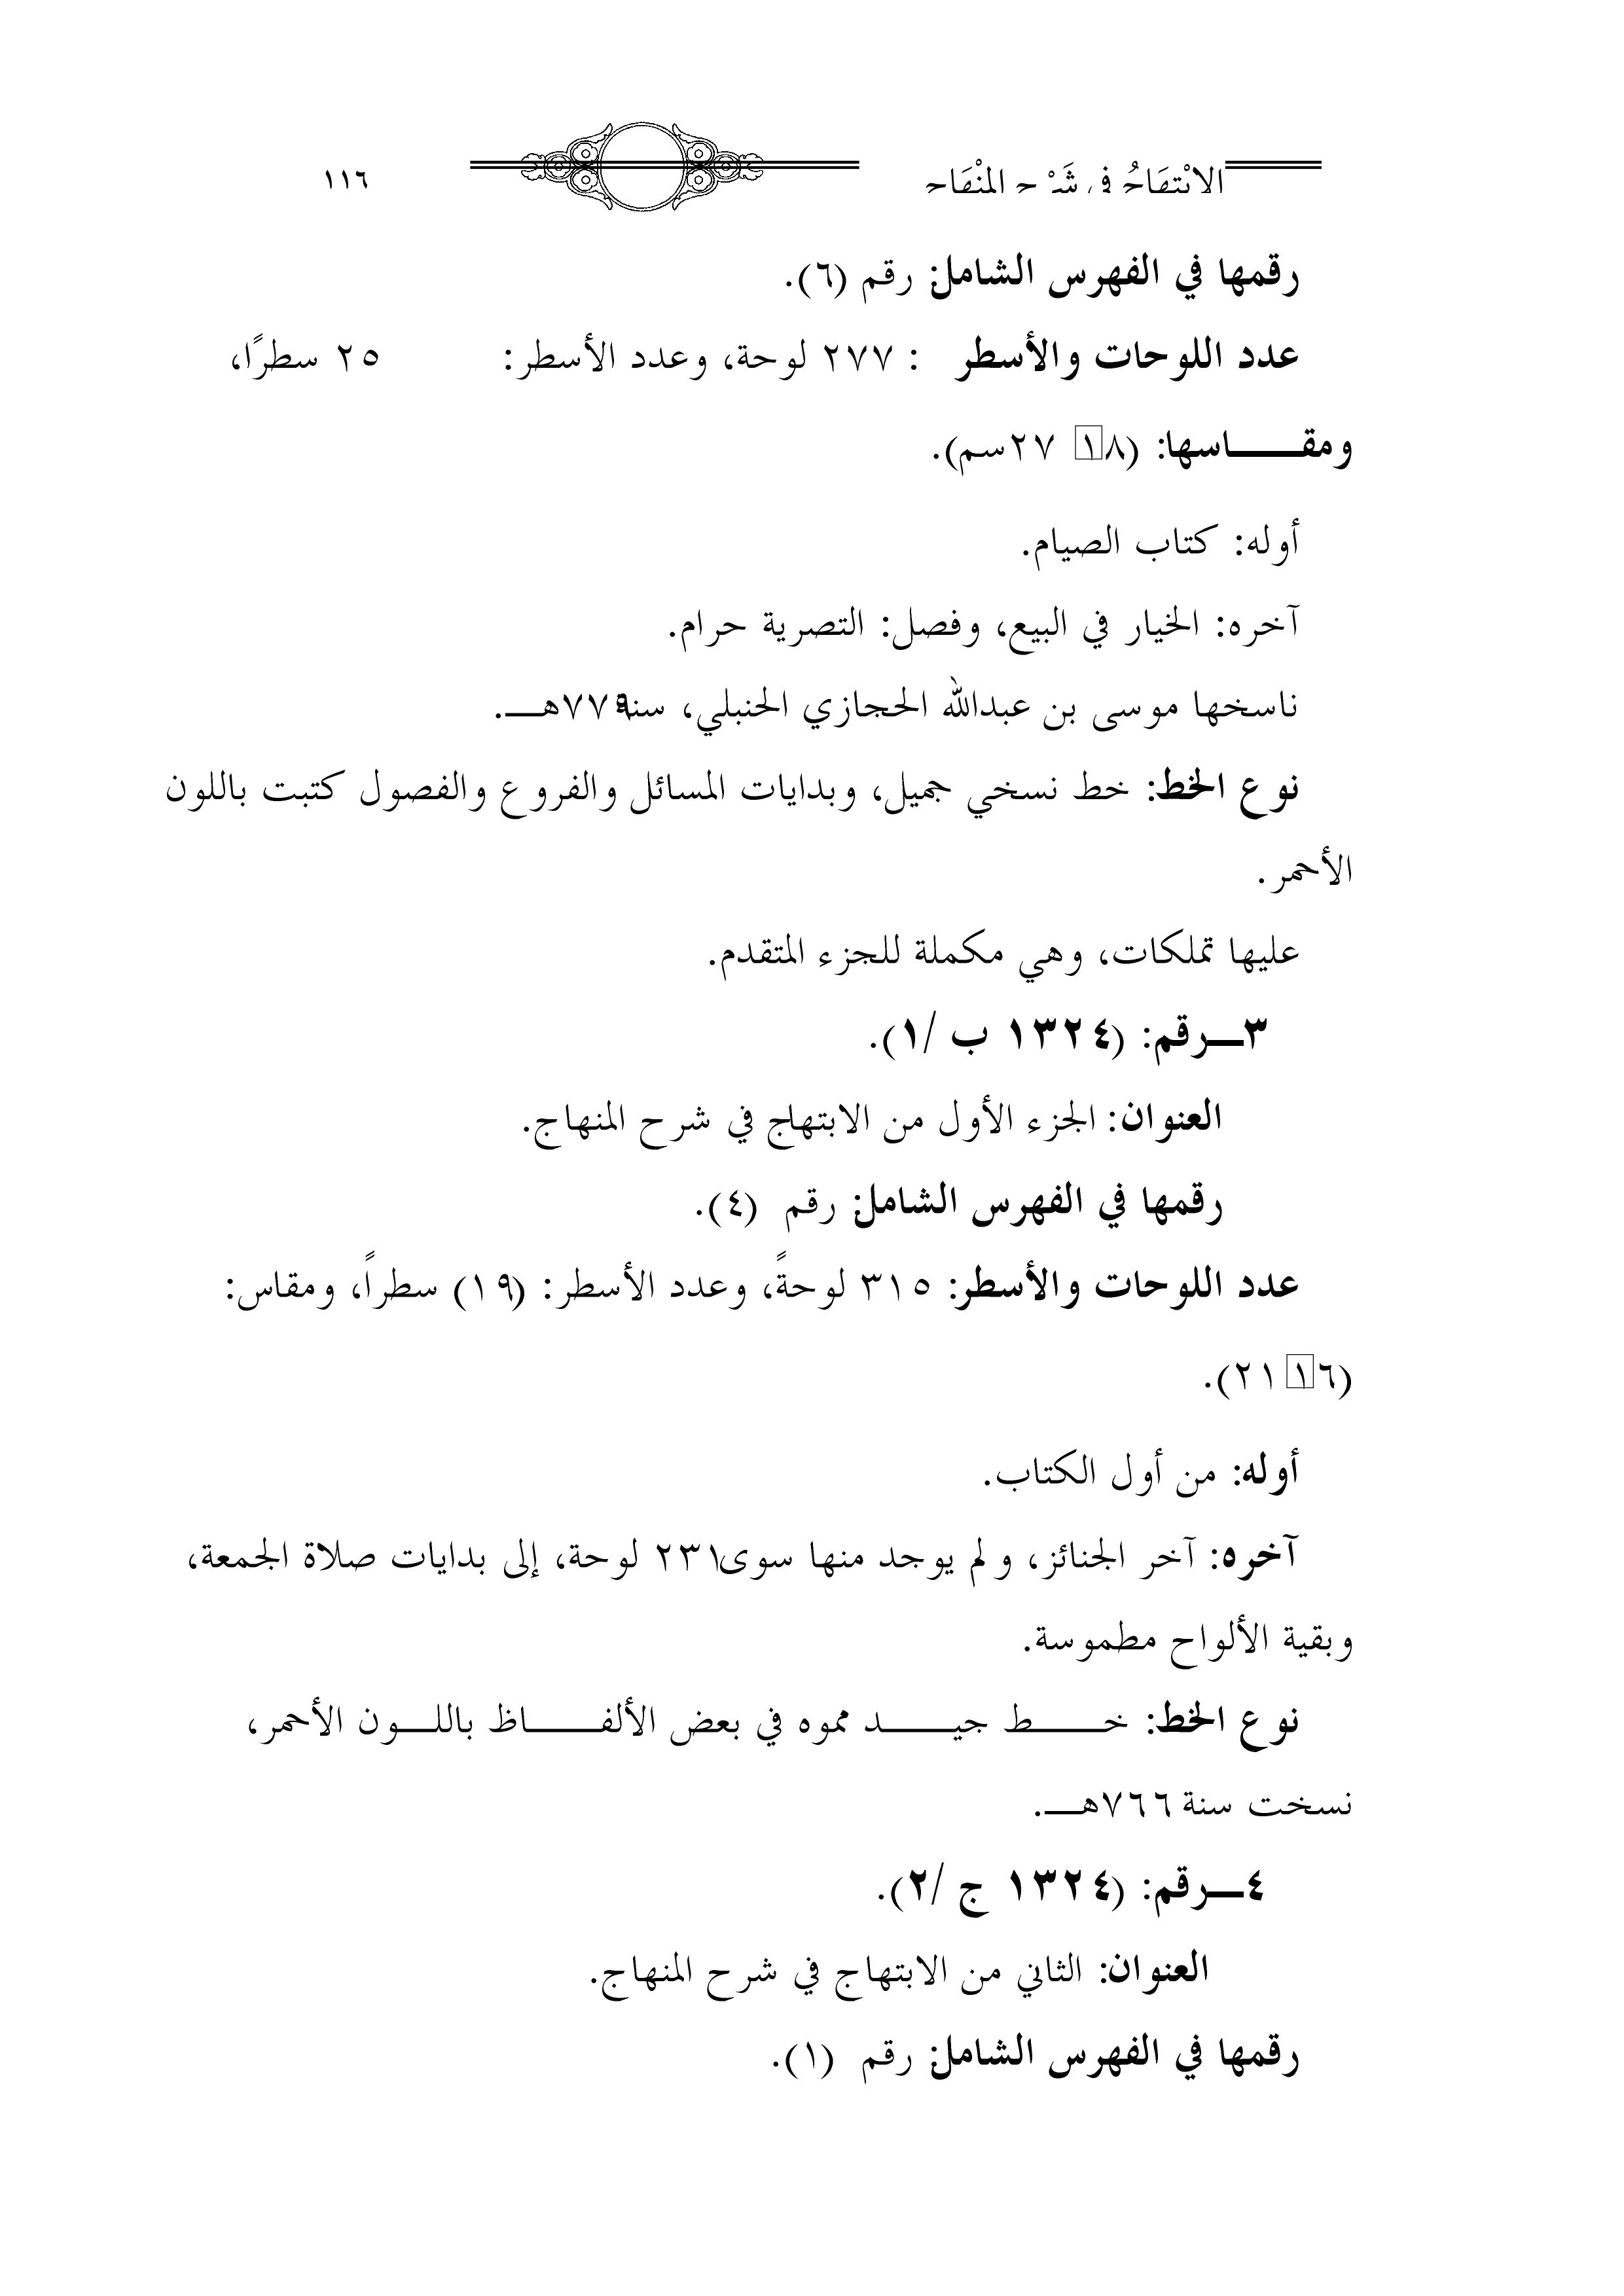 الابْتِهَاجُ فِي شَرْحِ المِنْهَاجِ ١١٦
رقمها في الفهرس الشامل: رقم (٦).
عدد اللوحات والأسطر : ٢٧٧ لوحة، وعدد الأسطر: ٢٥ سطرًا،
ومقـــــاسها: (١٨ ٢٧سم).
أوله: كتاب الصيام.
آخره: الخيار في البيع، وفصل: التصرية حرام.
ناسخها موسى بن عبدالله الحجازي الحنبلي، سنة٧٧٩هـــ.
نوع الخط: خط نسخي جميل، وبدايات المسائل والفروع والفصول كتبت باللون
الأحمر.
عليها تملكات، وهي مكملة للجزء المتقدم.
٣ــرقم: (١٣٢٤ ب /١).
العنوان: الجزء الأول من الابتهاج في شرح المنهاج.
رقمها في الفهرس الشامل: رقم (٤).
عدد اللوحات والأسطر: ٣١٥ لوحةً، وعدد الأسطر: (١٩) سطراً، ومقاس:
(١٦ ٢١).
أوله: من أول الكتاب.
آخره: آخر الجنائز، ولم يوجد منها سوى٢٣١ لوحة، إلى بدايات صلاة الجمعة،
وبقية الألواح مطموسة.
نوع الخط: خـــــط جيـــــد مموه في بعض الألفـــــاظ باللـــون الأحمر،
نسخت سنة ٧٦٦هـــ.
٤ــرقم: (١٣٢٤ ج /٢).
العنوان: الثاني من الابتهاج في شرح المنهاج.
رقمها في الفهرس الشامل: رقم (١).